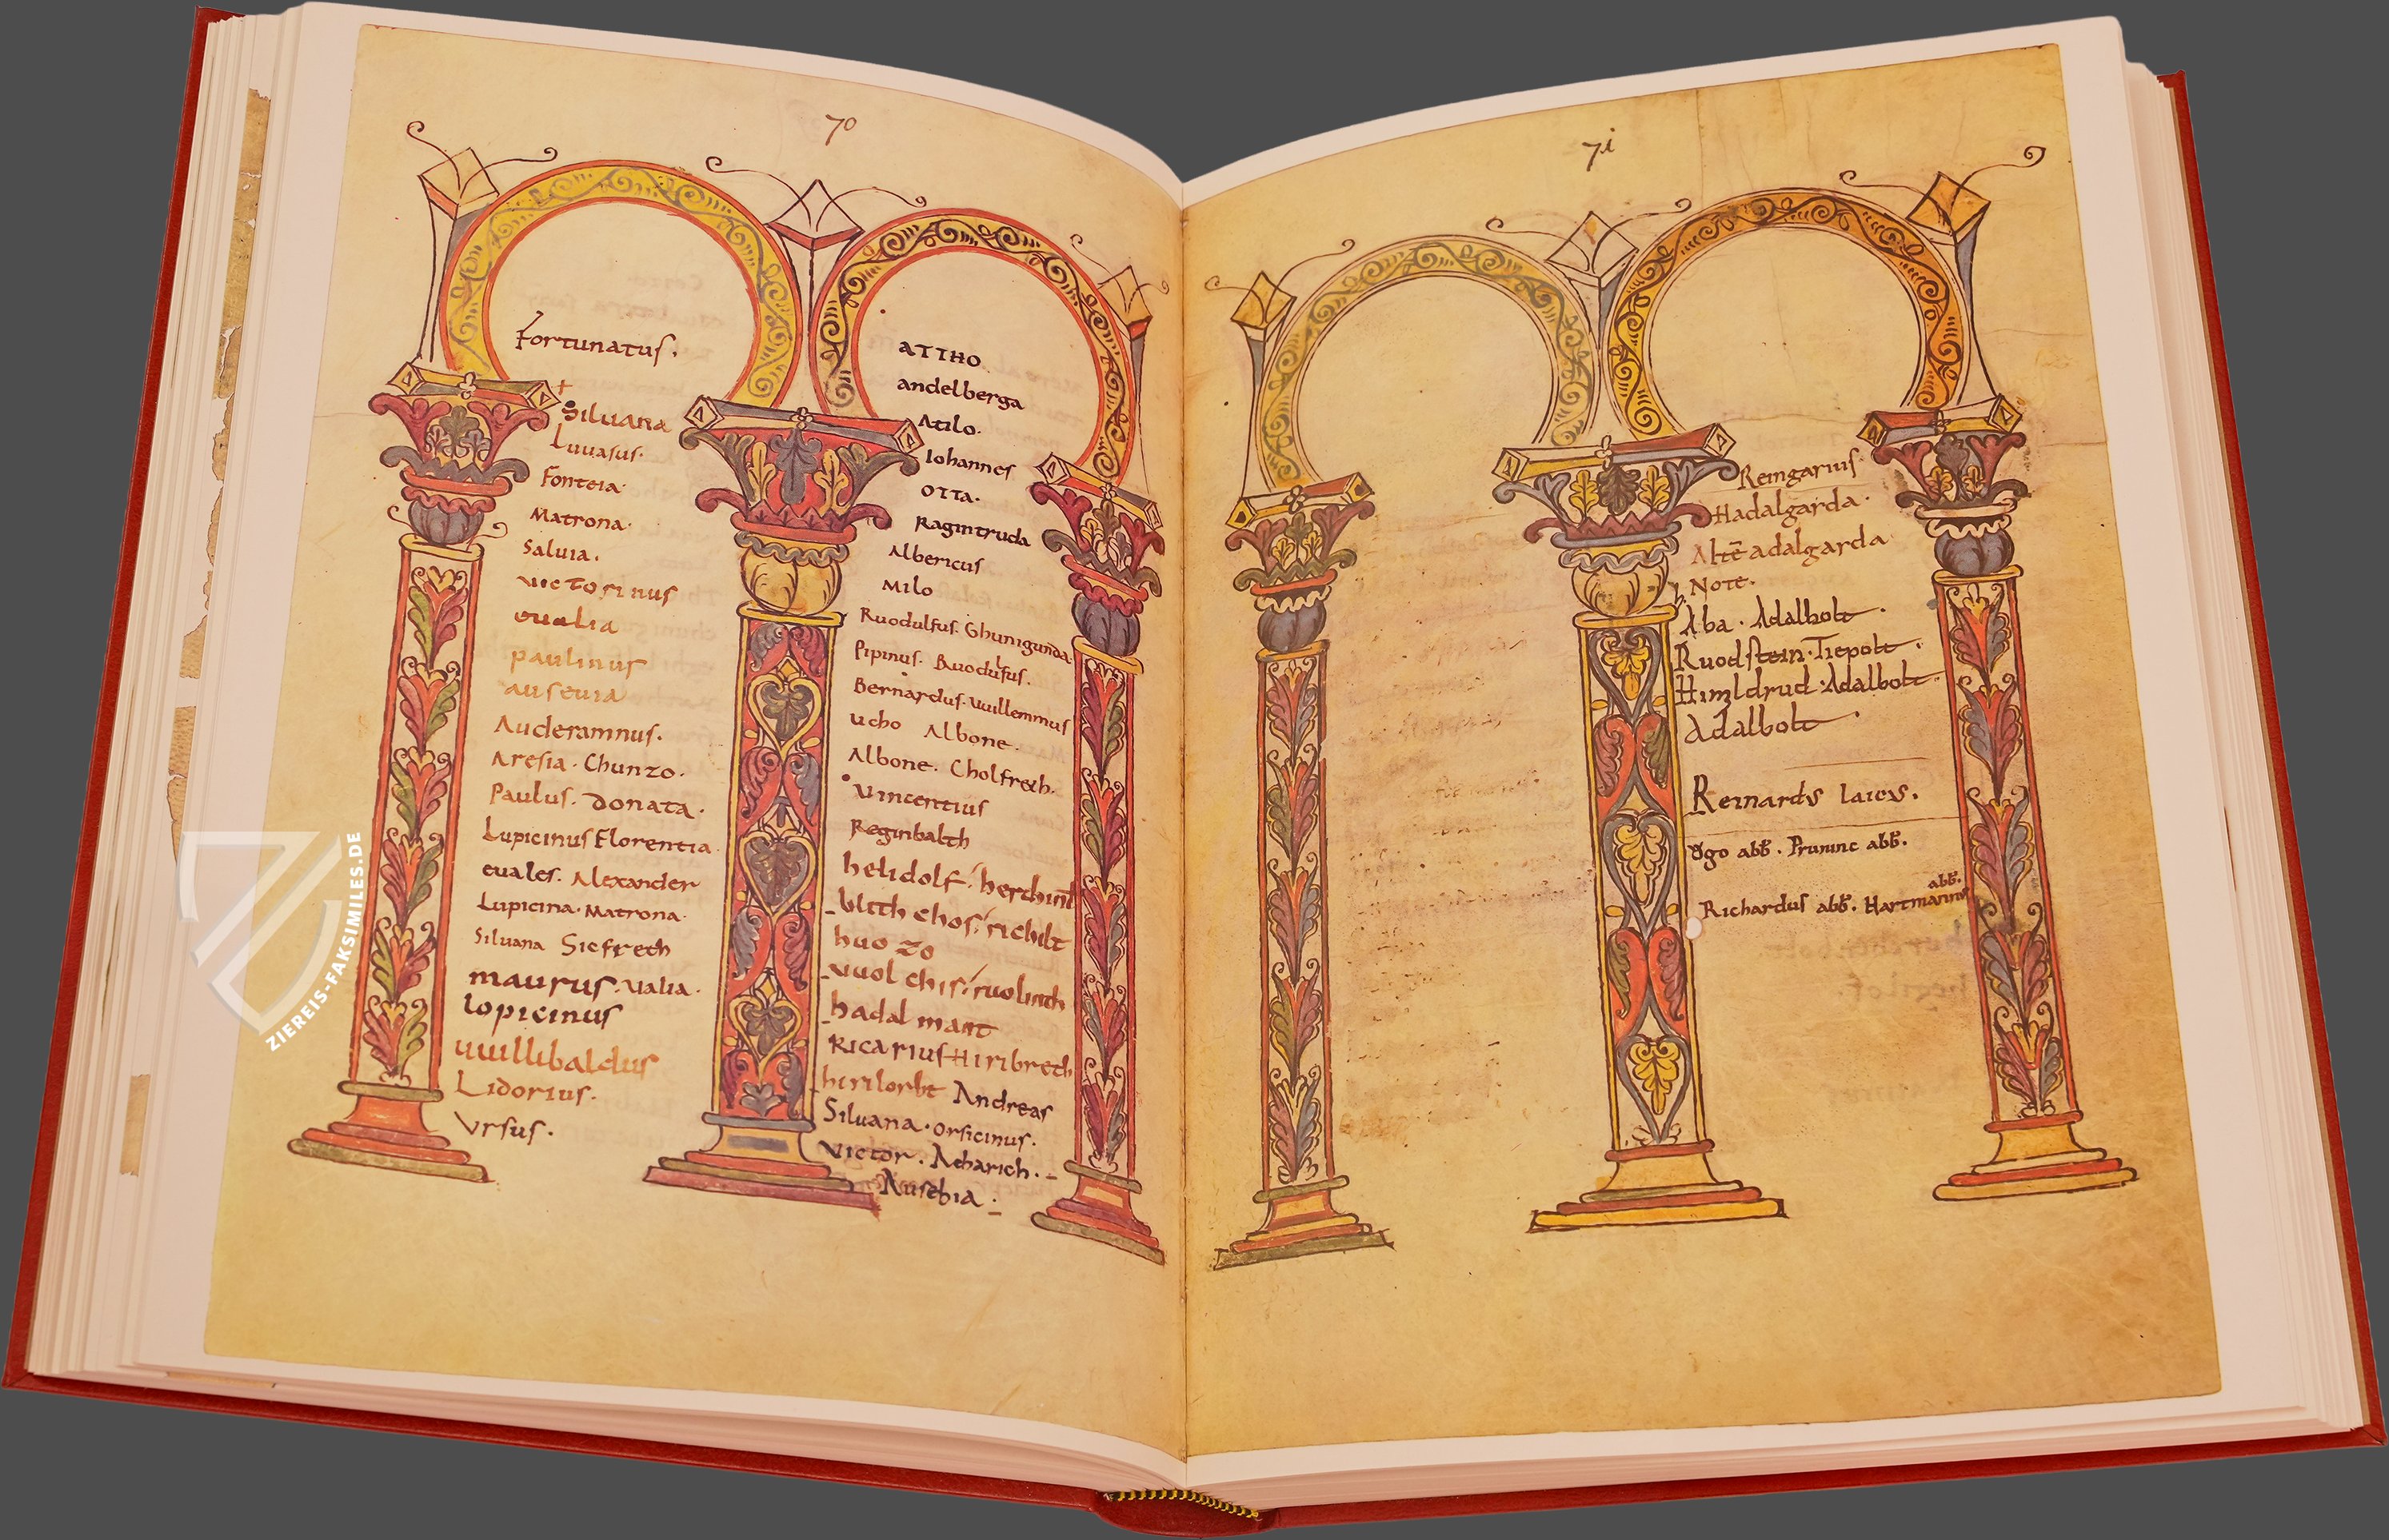 70
Fortunatus.
Siluana
Luuasus.
Fonteia
Matrona.
Saluia.
uictorinus
eualia
paulinus
auseuia
Auderamnus.
Aresia. Chunzo.
Paulus. Donata.
Lupicinus Florentia
euales. Alexander
Lupicina. Matrona.
Siluana Siefreth
maurus. Ualia.
lopicinus
uuillibaldus
Lidorius.
Vrsus.
ATTHO
andelberga
Atilo.
Iohannes
OTTA.
Ragintruda
Albericus
Milo
Ruodulfus. Ghunigunda.
Pipinus. Ruodulfus.
Bernardus. Uuillemmus
Ucho Albone.
Albone. Cholfreth.
Uincentius
Reginbalth
helidolf.
blith chos. richilt
huo zo
uuol chis. ruolinth
hadal mant
Ricarius Hiribreth
Andreas
Siluana. Orsicinus.
Victor. Acharich.
Ausebia.
71
Remgarius.
Hadalgarda.
Altē adalgarda
Note.
Aba. Adalbolt.
Ruodstein. Tiepolt.
Himldrud. Adalbolt.
Adalbolt.
Reinardus laicus.
abb̄. Prunınc abb̄.
abb̄.
Richardus abb̄. Hartmannus
ZIEREIS-FAKSIMILES.DE